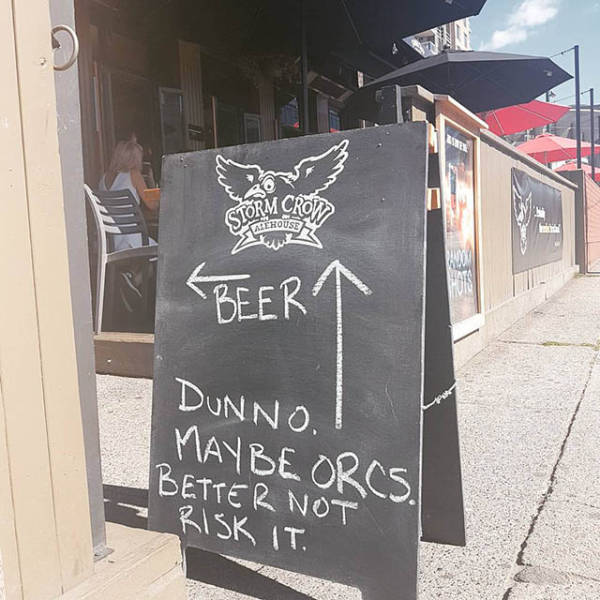 STORM CROW
ALEHOUSE
BEER
DUNNO.
MAYBE ORCS.
BETTER NOT
RISK IT.